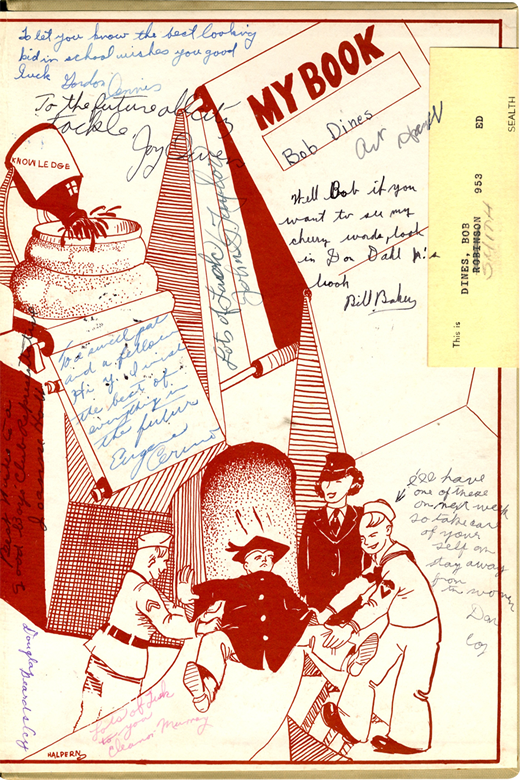 To let you know the best looking
kid in school wishes you good
luck Gordon Ennis
To the future
tackle
MY BOOK
Bob Dines
Art
KNOWLEDGE
Well Bob if you
want to see my
cherry words, look
in Don Dall Jr's
book
Bill Baker
This is
DINES, BOB
ROBINSON 953 ED
SEALTH
Lots of Luck
John S. Taylor
To a swell pal
and a fellow
Hi-Y. I wish
the best of
everything in
the future
Eugene
Cerino
Best wishes to a
good Boys Club
I'll have
one of these
on next week
so take care
of your
self an
stay away
from
the women
Dan
Douglas Beardsley
Lots of luck
to you
Eleanor Murray
HALPERN